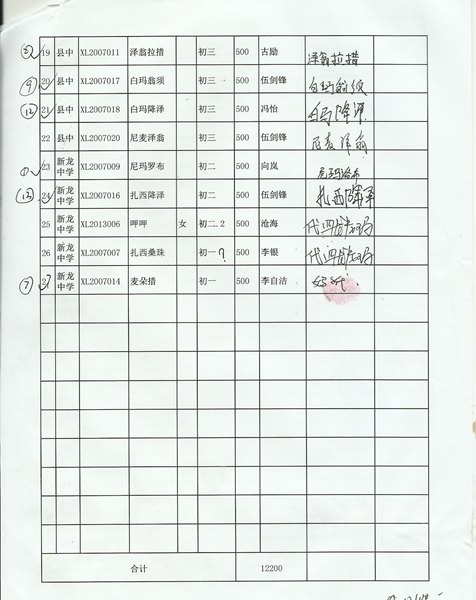 19 县中 XL2007011 泽翁拉措 初三 500 古励 泽翁拉措
⑨ 20 县中 XL2007017 白玛翁须 初三 500 伍剑锋
⑫ 21 县中 XL2007018 白玛降泽 初三 500 冯怡 白玛降泽
22 县中 XL2007020 尼麦泽翁 初三 500 伍剑锋 尼麦泽翁
23 新龙中学 XL2007009 尼玛罗布 初二 500 向岚
24 新龙中学 XL2007016 扎西降泽 初二 500 伍剑锋 扎西降泽
25 新龙中学 XL2013006 呷呷 女 初二.2 500 沧海
26 新龙中学 XL2007007 扎西桑珠 初一? 500 李银
⑦ 27 新龙中学 XL2007014 麦朵措 初一 500 李自洁
合计 12200